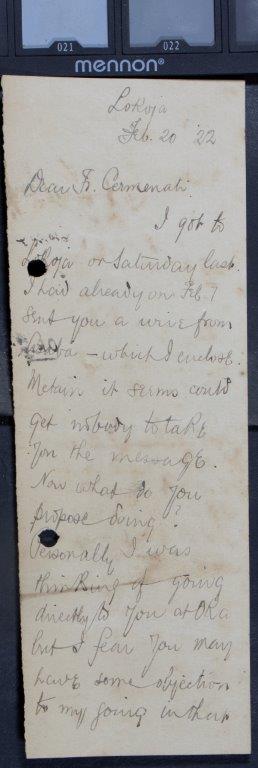 021
022
mennon®
Lokoja
Feb. 20 '22
Dear Fr. Cermenati
I got to
Lokoja on Saturday last.
I had already on Feb 7
sent you a wire from
– which I enclose.
it seems could
get nobody to take
you the message.
Now what do you
propose doing?
Personally I was
thinking of going
directly to you at Oka
but I fear you may
have some objection
to my going in that